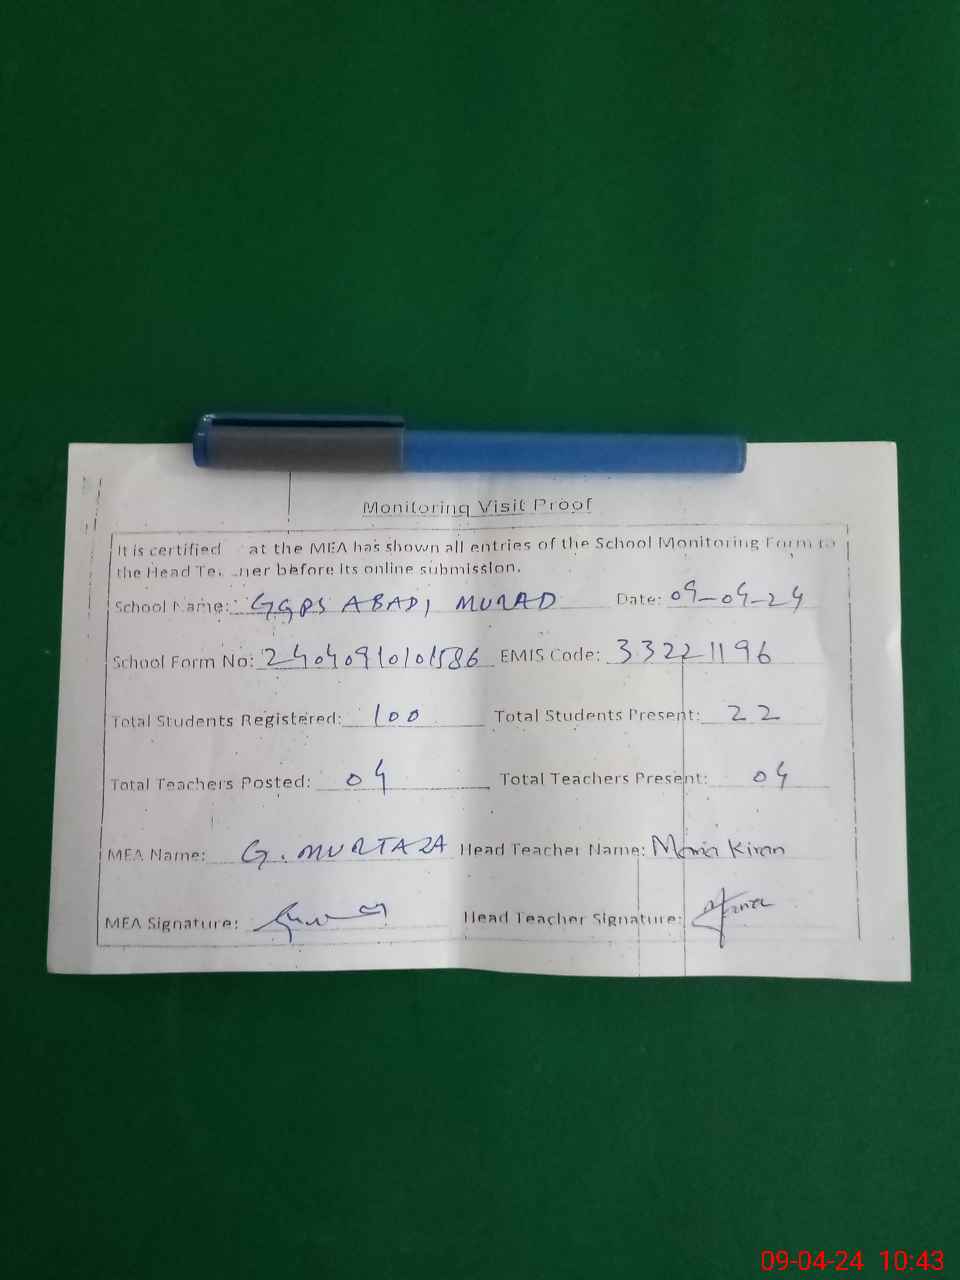 Monitoring Visit Proof
It is certified at the MEA has shown all entries of the School Monitoring Form to
the Head Te. .ner before its online submission.
School Name: GGPS ABADI MURAD Date: 09-04-24
School Form No: 24040910101586 EMIS Code: 33221196
Total Students Registered: 100 Total Students Present: 22
Total Teachers Posted: 04 Total Teachers Present: 04
MEA Name: G. MURTAZA Head Teacher Name: Maria Kiran
MEA Signature: Head Teacher Signature:
09-04-24 10:43